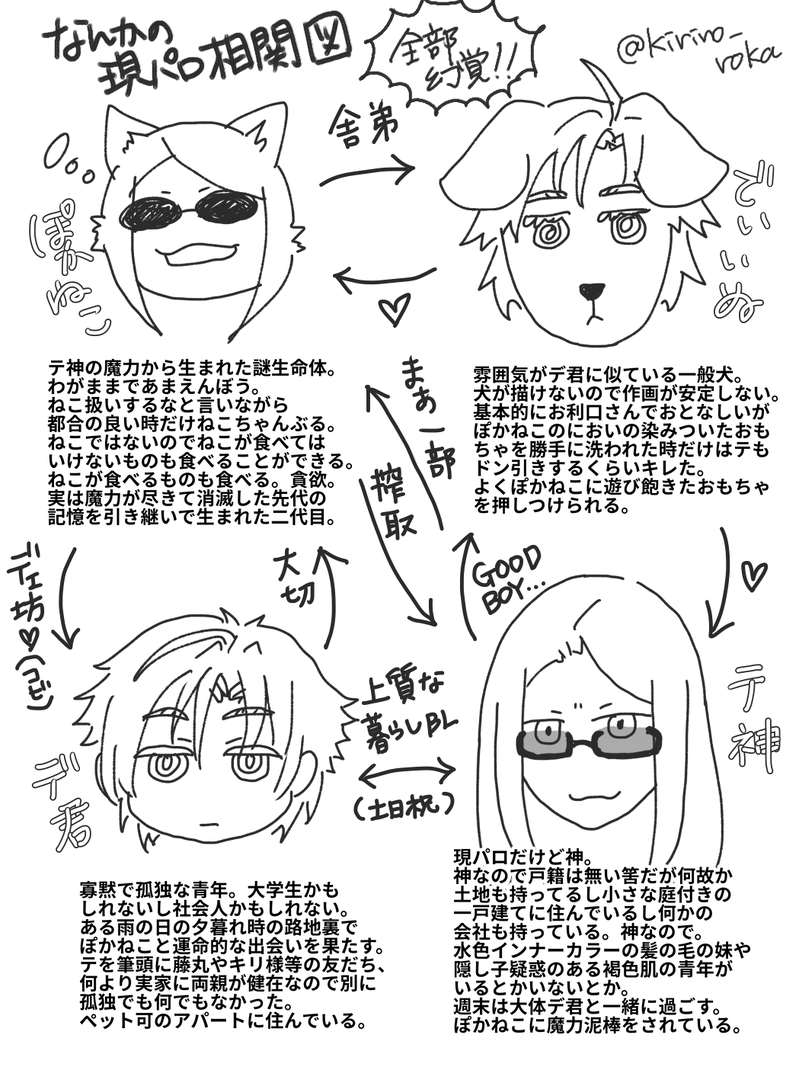 なんかの
現パロ相関図
全部
幻覚!!
@kiriro_
roka
舎弟
ぽかねこ
でいいぬ
テ神の魔力から生まれた謎生命体。
わがままであまえんぼう。
ねこ扱いするなと言いながら
都合の良い時だけねこちゃんぶる。
ねこではないのでねこが食べては
いけないものも食べることができる。
ねこが食べるものも食べる。貪欲。
実は魔力が尽きて消滅した先代の
記憶を引き継いで生まれた二代目。
まぁ一部
搾取
雰囲気がデ君に似ている一般犬。
犬が描けないので作画が安定しない。
基本的にお利口さんでおとなしいが
ぽかねこのにおいの染みついたおも
ちゃを勝手に洗われた時だけはテも
ドン引きするくらいキレた。
よくぽかねこに遊び飽きたおもちゃ
を押しつけられる。
デェ坊♡(コビ)
大切
GOOD
BOY...
上質な
暮らしBL
(土日祝)
デ君
テ神
寡黙で孤独な青年。大学生かも
しれないし社会人かもしれない。
ある雨の日の夕暮れ時の路地裏で
ぽかねこと運命的な出会いを果たす。
テを筆頭に藤丸やキリ様等の友だち、
何より実家に両親が健在なので別に
孤独でも何でもなかった。
ペット可のアパートに住んでいる。
現パロだけど神。
神なので戸籍は無い筈だが何故か
土地も持ってるし小さな庭付きの
一戸建てに住んでいるし何かの
会社も持っている。神なので。
水色インナーカラーの髪の毛の妹や
隠し子疑惑のある褐色肌の青年が
いるとかいないとか。
週末は大体デ君と一緒に過ごす。
ぽかねこに魔力泥棒をされている。